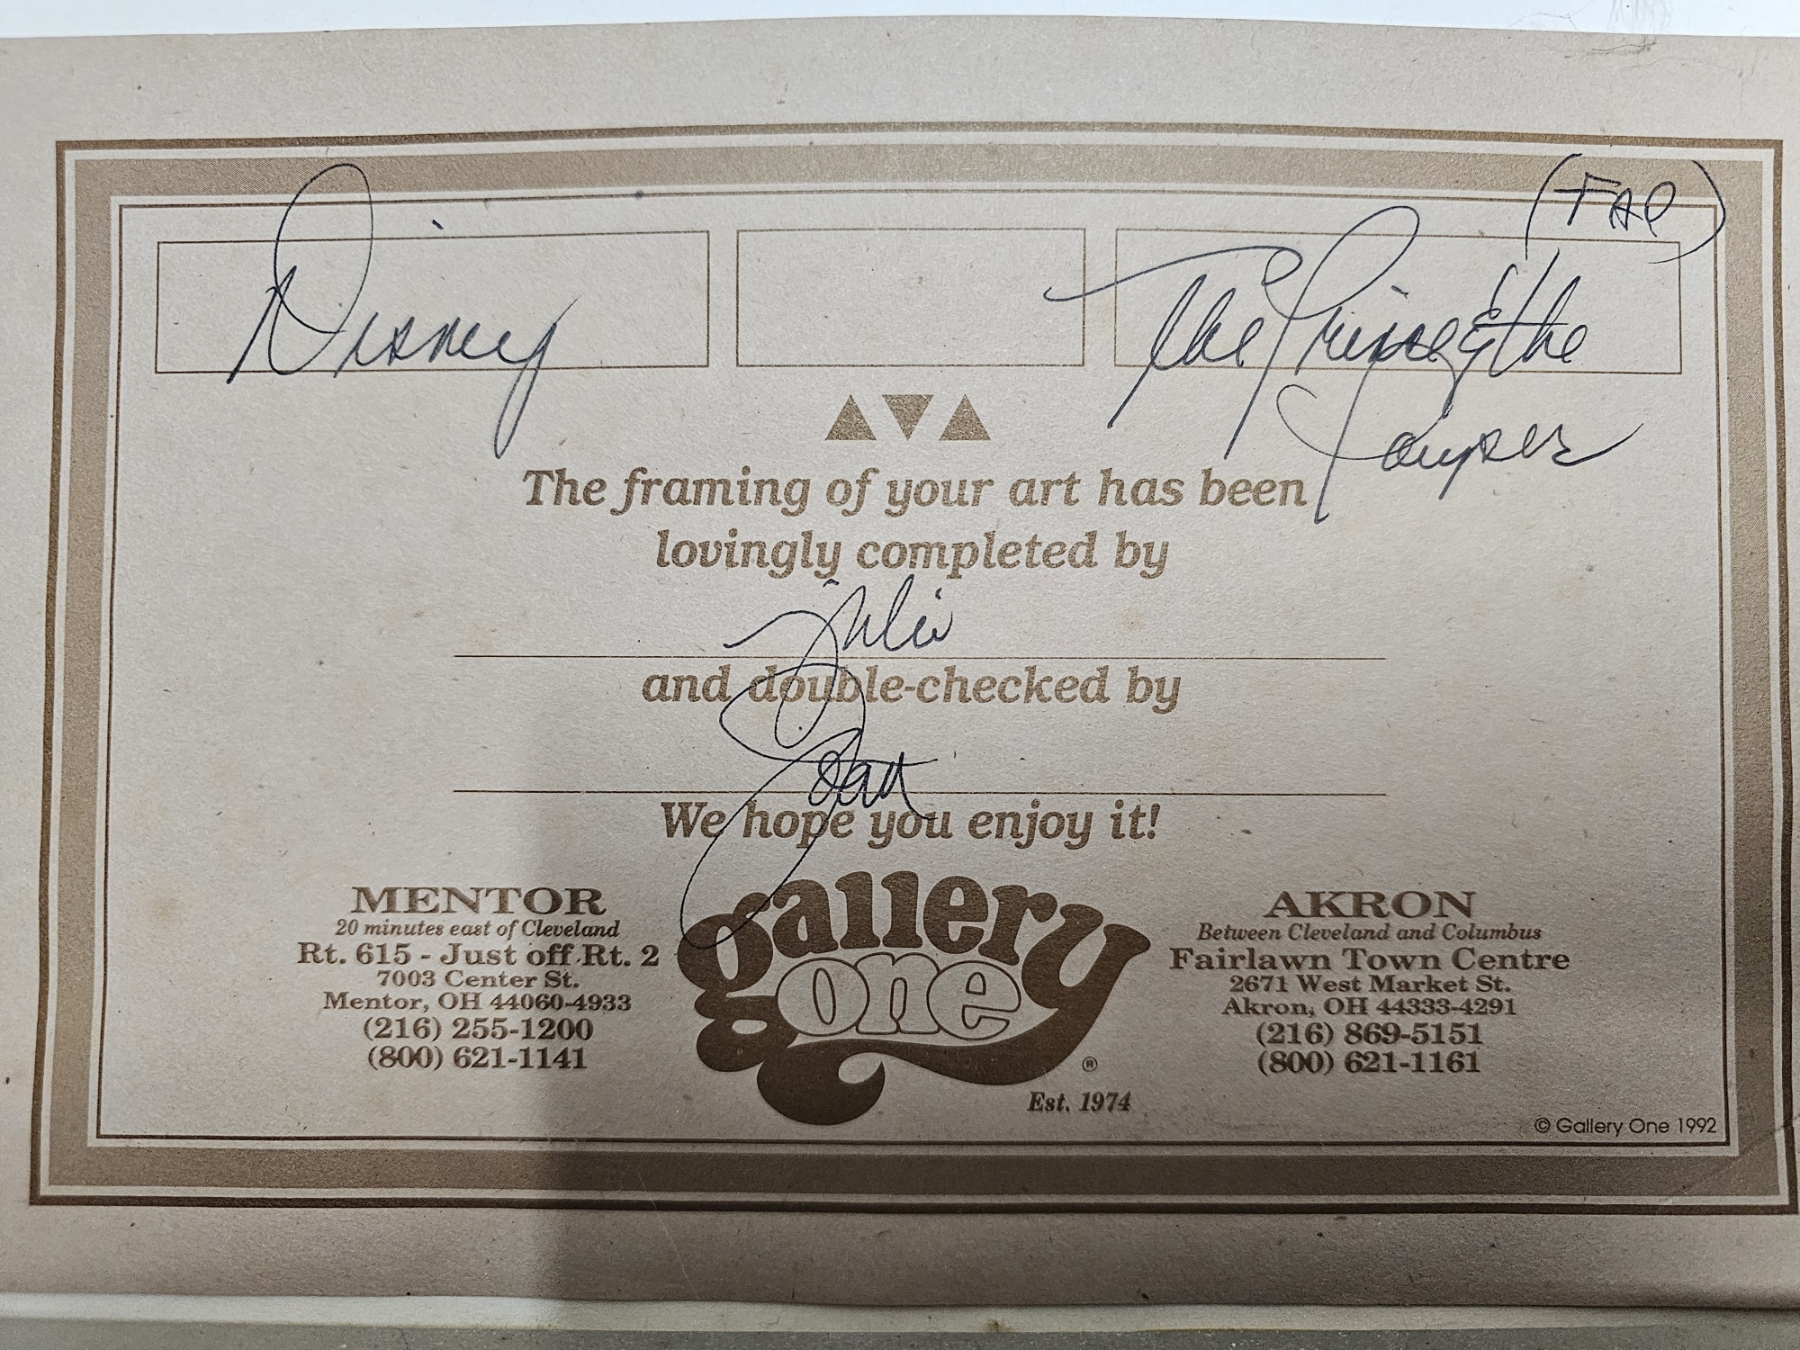 (FAP)
Disney
The Prince & the
Pauper
The framing of your art has been
lovingly completed by
Julie
and double-checked by
Joan
We hope you enjoy it!
MENTOR
20 minutes east of Cleveland
Rt. 615 - Just off Rt. 2
7003 Center St.
Mentor, OH 44060-4933
(216) 255-1200
(800) 621-1141
gallery
one
®
Est. 1974
AKRON
Between Cleveland and Columbus
Fairlawn Town Centre
2671 West Market St.
Akron, OH 44333-4291
(216) 869-5151
(800) 621-1161
© Gallery One 1992